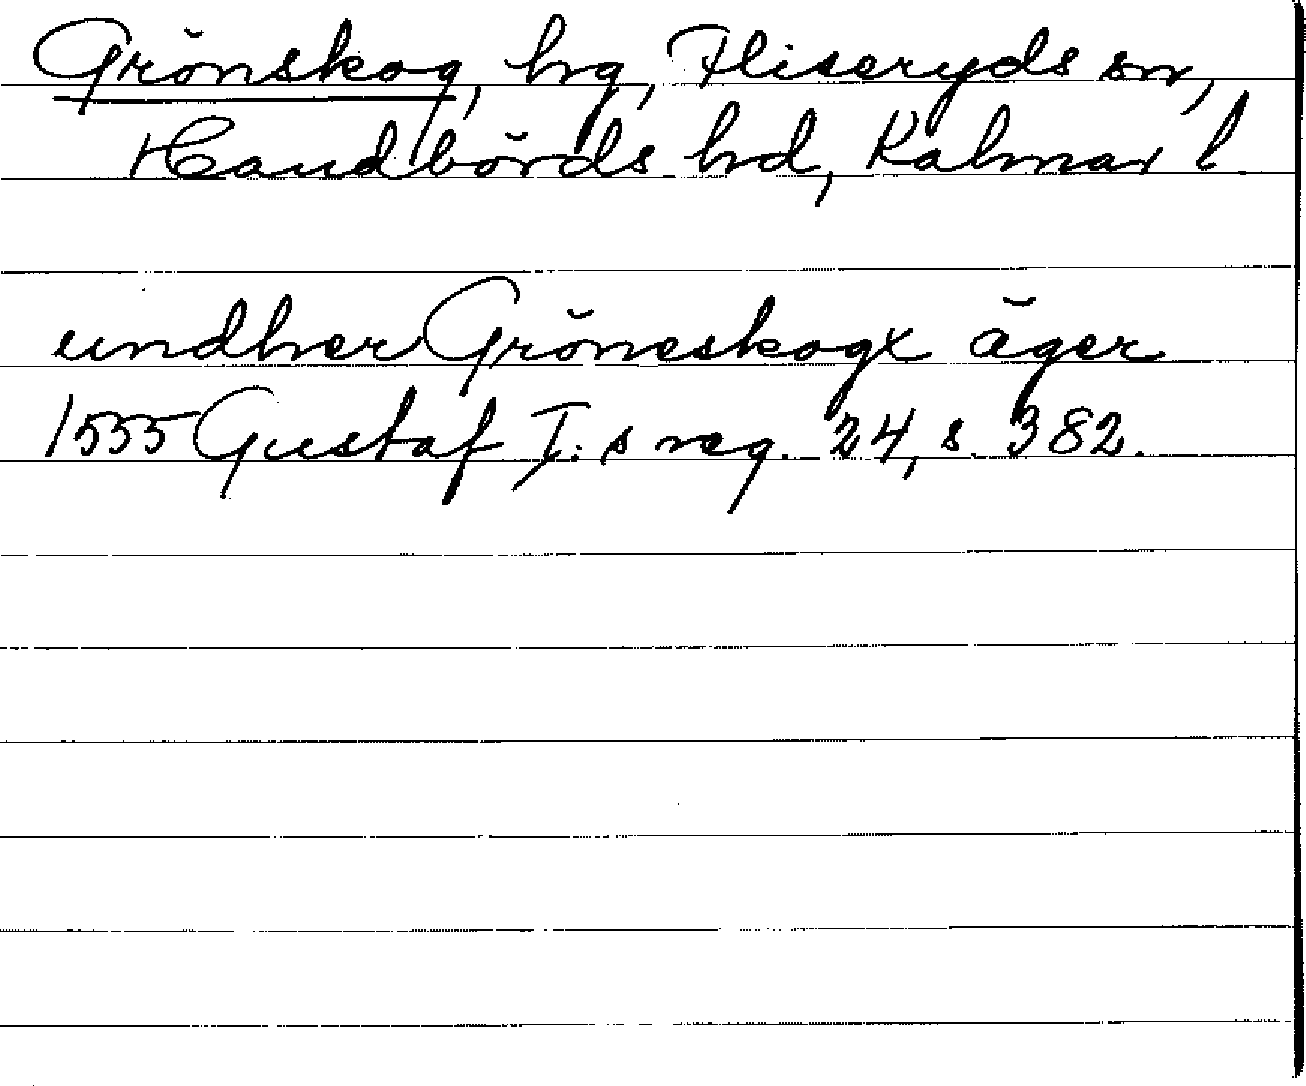 Grönskog, hg, Fliseryds sn,
Handbörds hd, Kalmar l
undher Gröneskogx äger
1555 Gustaf I:s reg. 24, s. 382.